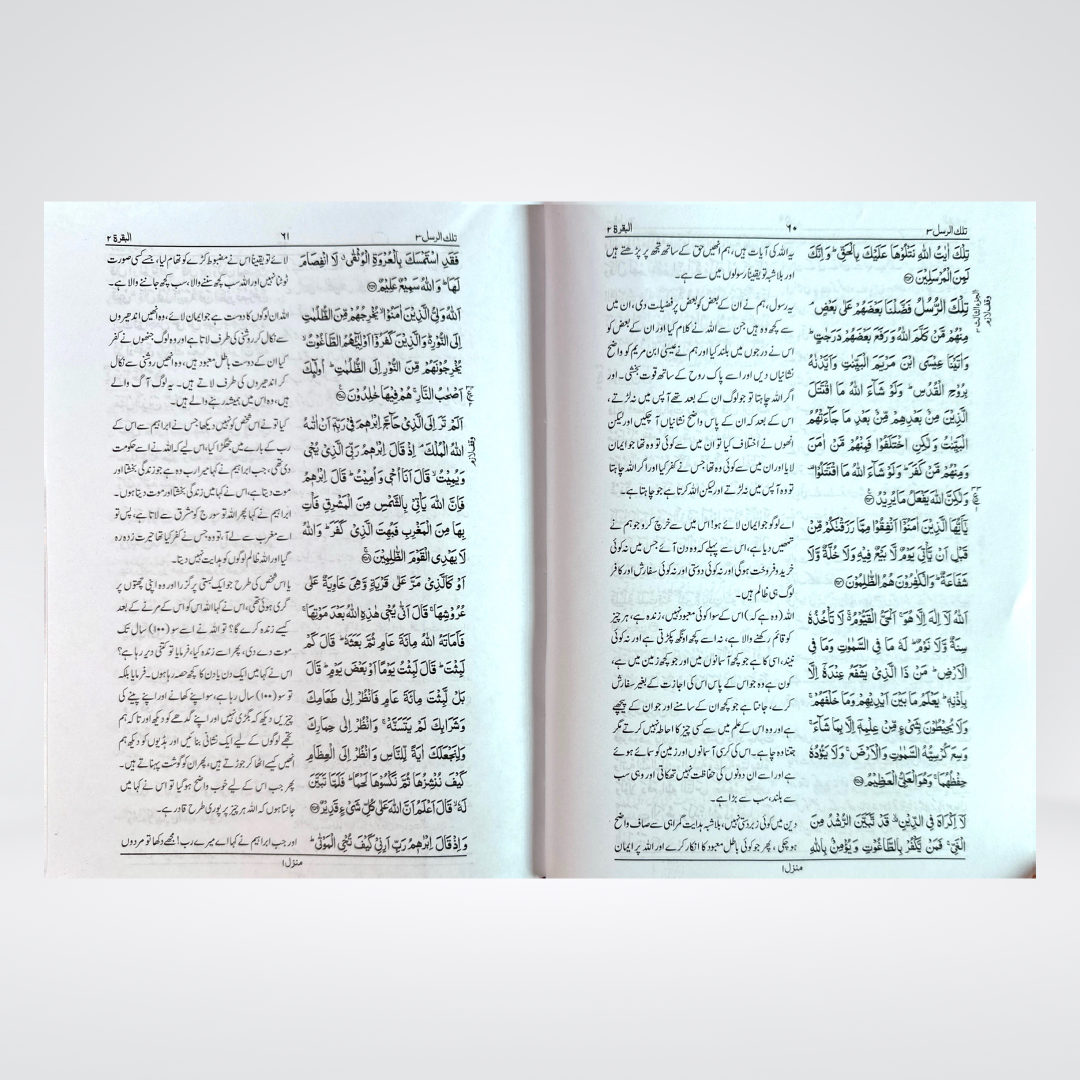 تلك الرسل ٣ ٦٠ البقرة ٢
تِلْكَ اٰيٰتُ اللّٰهِ نَتْلُوْهَا عَلَيْكَ بِالْحَقِّ ؕ وَاِنَّكَ
لَمِنَ الْمُرْسَلِيْنَ ﴿٢٥٢﴾
تِلْكَ الرُّسُلُ فَضَّلْنَا بَعْضَهُمْ عَلٰى بَعْضٍ ۘ
مِنْهُمْ مَّنْ كَلَّمَ اللّٰهُ وَرَفَعَ بَعْضَهُمْ دَرَجٰتٍ ؕ
وَاٰتَيْنَا عِيْسَى ابْنَ مَرْيَمَ الْبَيِّنٰتِ وَاَيَّدْنٰهُ
بِرُوْحِ الْقُدُسِ ؕ وَلَوْ شَآءَ اللّٰهُ مَا اقْتَتَلَ
الَّذِيْنَ مِنْۢ بَعْدِهِمْ مِّنْۢ بَعْدِ مَا جَآءَتْهُمُ
الْبَيِّنٰتُ وَلٰكِنِ اخْتَلَفُوْا فَمِنْهُمْ مَّنْ اٰمَنَ
وَمِنْهُمْ مَّنْ كَفَرَ ؕ وَلَوْ شَآءَ اللّٰهُ مَا اقْتَتَلُوْا ۫
وَلٰكِنَّ اللّٰهَ يَفْعَلُ مَا يُرِيْدُ ﴿٢٥٣﴾
يٰۤاَيُّهَا الَّذِيْنَ اٰمَنُوْۤا اَنْفِقُوْا مِمَّا رَزَقْنٰكُمْ مِّنْ
قَبْلِ اَنْ يَّاْتِيَ يَوْمٌ لَّا بَيْعٌ فِيْهِ وَلَا خُلَّةٌ وَّلَا
شَفَاعَةٌ ؕ وَالْكٰفِرُوْنَ هُمُ الظّٰلِمُوْنَ ﴿٢٥٤﴾
اَللّٰهُ لَاۤ اِلٰهَ اِلَّا هُوَ ۚ اَلْحَيُّ الْقَيُّوْمُ ۚ لَا تَاْخُذُهٗ
سِنَةٌ وَّلَا نَوْمٌ ؕ لَهٗ مَا فِي السَّمٰوٰتِ وَمَا فِي
الْاَرْضِ ؕ مَنْ ذَا الَّذِيْ يَشْفَعُ عِنْدَهٗۤ اِلَّا
بِاِذْنِهٖ ؕ يَعْلَمُ مَا بَيْنَ اَيْدِيْهِمْ وَمَا خَلْفَهُمْ ۚ
وَلَا يُحِيْطُوْنَ بِشَيْءٍ مِّنْ عِلْمِهٖۤ اِلَّا بِمَا شَآءَ ۚ
وَسِعَ كُرْسِيُّهُ السَّمٰوٰتِ وَالْاَرْضَ ۚ وَلَا يَـُٔوْدُهٗ
حِفْظُهُمَا ۚ وَهُوَ الْعَلِيُّ الْعَظِيْمُ ﴿٢٥٥﴾
لَاۤ اِكْرَاهَ فِي الدِّيْنِ ۟ قَدْ تَّبَيَّنَ الرُّشْدُ مِنَ
الْغَيِّ ۚ فَمَنْ يَّكْفُرْ بِالطَّاغُوْتِ وَيُؤْمِنْۢ بِاللّٰهِ
یہ اللہ کی آیات ہیں، ہم انھیں حق کے ساتھ تجھ پر پڑھتے ہیں
اور بلاشبہ تو یقیناً رسولوں میں سے ہے۔
یہ رسول، ہم نے ان کے بعض کو بعض پر فضیلت دی، ان میں
سے کچھ وہ ہیں جن سے اللہ نے کلام کیا اور ان کے بعض کو
اس نے درجوں میں بلند کیا اور ہم نے عیسیٰ ابن مریم کو واضح
نشانیاں دیں اور اسے پاک روح کے ساتھ قوت بخشی۔ اور
اگر اللہ چاہتا تو جو لوگ ان کے بعد تھے آپس میں نہ لڑتے،
اس کے بعد کہ ان کے پاس واضح نشانیاں آ چکیں اور لیکن
انھوں نے اختلاف کیا تو ان میں سے کوئی تو وہ تھا جو ایمان
لایا اور ان میں سے کوئی وہ تھا جس نے کفر کیا اور اگر اللہ چاہتا
تو وہ آپس میں نہ لڑتے اور لیکن اللہ کرتا ہے جو چاہتا ہے۔
اے لوگو جو ایمان لائے ہو! اس میں سے خرچ کرو جو ہم نے
تمھیں دیا ہے، اس سے پہلے کہ وہ دن آئے جس میں نہ کوئی
خرید و فروخت ہوگی اور نہ کوئی دوستی اور نہ کوئی سفارش اور کافر
لوگ ہی ظالم ہیں۔
اللہ (وہ ہے کہ) اس کے سوا کوئی معبود نہیں، زندہ ہے، ہر چیز
کو قائم رکھنے والا ہے، نہ اسے کچھ اونگھ پکڑتی ہے اور نہ کوئی
نیند، اسی کا ہے جو کچھ آسمانوں میں اور جو کچھ زمین میں ہے،
کون ہے وہ جو اس کے پاس اس کی اجازت کے بغیر سفارش
کرے، جانتا ہے جو کچھ ان کے سامنے اور جو ان کے پیچھے
ہے اور وہ اس کے علم میں سے کسی چیز کا احاطہ نہیں کرتے مگر
جتنا وہ چاہے۔ اس کی کرسی آسمانوں اور زمین کو سمائے ہوئے
ہے اور اسے ان دونوں کی حفاظت نہیں تھکاتی اور وہی سب
سے بلند، سب سے بڑا ہے۔
دین میں کوئی زبردستی نہیں، بلاشبہ ہدایت گمراہی سے صاف واضح
ہو چکی، پھر جو کوئی باطل معبود کا انکار کرے اور اللہ پر ایمان
الجزء الثالث ٣
وقف لازم
منزل ١
تلك الرسل ٣ ٦١ البقرة ٢
فَقَدِ اسْتَمْسَكَ بِالْعُرْوَةِ الْوُثْقٰى ۗ لَا انْفِصَامَ
لَهَا ؕ وَاللّٰهُ سَمِيْعٌ عَلِيْمٌ ﴿٢٥٦﴾
اَللّٰهُ وَلِيُّ الَّذِيْنَ اٰمَنُوْا ۙ يُخْرِجُهُمْ مِّنَ الظُّلُمٰتِ
اِلَى النُّوْرِ ؕ وَالَّذِيْنَ كَفَرُوْۤا اَوْلِيٰٓـُٔهُمُ الطَّاغُوْتُ ۙ
يُخْرِجُوْنَهُمْ مِّنَ النُّوْرِ اِلَى الظُّلُمٰتِ ؕ اُولٰٓئِكَ
اَصْحٰبُ النَّارِ ۚ هُمْ فِيْهَا خٰلِدُوْنَ ﴿٢٥٧﴾
اَلَمْ تَرَ اِلَى الَّذِيْ حَآجَّ اِبْرٰهٖمَ فِيْ رَبِّهٖۤ اَنْ اٰتٰىهُ
اللّٰهُ الْمُلْكَ ۘ اِذْ قَالَ اِبْرٰهٖمُ رَبِّيَ الَّذِيْ يُحْيٖ
وَيُمِيْتُ ۙ قَالَ اَنَا اُحْيٖ وَاُمِيْتُ ؕ قَالَ اِبْرٰهٖمُ
فَاِنَّ اللّٰهَ يَاْتِيْ بِالشَّمْسِ مِنَ الْمَشْرِقِ فَاْتِ
بِهَا مِنَ الْمَغْرِبِ فَبُهِتَ الَّذِيْ كَفَرَ ؕ وَاللّٰهُ
لَا يَهْدِي الْقَوْمَ الظّٰلِمِيْنَ ﴿٢٥٨﴾
اَوْ كَالَّذِيْ مَرَّ عَلٰى قَرْيَةٍ وَّهِيَ خَاوِيَةٌ عَلٰى
عُرُوْشِهَا ۚ قَالَ اَنّٰى يُحْيٖ هٰذِهِ اللّٰهُ بَعْدَ مَوْتِهَا ۚ
فَاَمَاتَهُ اللّٰهُ مِائَةَ عَامٍ ثُمَّ بَعَثَهٗ ؕ قَالَ كَمْ
لَبِثْتَ ؕ قَالَ لَبِثْتُ يَوْمًا اَوْ بَعْضَ يَوْمٍ ؕ قَالَ
بَلْ لَّبِثْتَ مِائَةَ عَامٍ فَانْظُرْ اِلٰى طَعَامِكَ
وَشَرَابِكَ لَمْ يَتَسَنَّهْ ۚ وَانْظُرْ اِلٰى حِمَارِكَ
وَلِنَجْعَلَكَ اٰيَةً لِّلنَّاسِ وَانْظُرْ اِلَى الْعِظَامِ
كَيْفَ نُنْشِزُهَا ثُمَّ نَكْسُوْهَا لَحْمًا ؕ فَلَمَّا تَبَيَّنَ
لَهٗ ۙ قَالَ اَعْلَمُ اَنَّ اللّٰهَ عَلٰى كُلِّ شَيْءٍ قَدِيْرٌ ﴿٢٥٩﴾
وَاِذْ قَالَ اِبْرٰهٖمُ رَبِّ اَرِنِيْ كَيْفَ تُحْيِ الْمَوْتٰى ؕ
لائے تو یقیناً اس نے مضبوط کڑے کو تھام لیا، جسے کسی صورت
ٹوٹنا نہیں اور اللہ سب کچھ سننے والا، سب کچھ جاننے والا ہے۔
اللہ ان لوگوں کا دوست ہے جو ایمان لائے، وہ انھیں اندھیروں
سے نکال کر روشنی کی طرف لاتا ہے اور وہ لوگ جنھوں نے کفر
کیا ان کے دوست باطل معبود ہیں، وہ انھیں روشنی سے نکال
کر اندھیروں کی طرف لاتے ہیں۔ یہ لوگ آگ والے
ہیں، وہ اس میں ہمیشہ رہنے والے ہیں۔
کیا تو نے اس شخص کو نہیں دیکھا جس نے ابراہیم سے اس کے
رب کے بارے میں جھگڑا کیا، اس لیے کہ اللہ نے اسے حکومت
دی تھی، جب ابراہیم نے کہا میرا رب وہ ہے جو زندگی بخشتا اور
موت دیتا ہے، اس نے کہا میں زندگی بخشتا اور موت دیتا ہوں۔
ابراہیم نے کہا پھر اللہ تو سورج کو مشرق سے لاتا ہے، پس تو
اسے مغرب سے لے آ، تو وہ جس نے کفر کیا تھا حیرت زدہ رہ
گیا اور اللہ ظالم لوگوں کو ہدایت نہیں دیتا۔
یا اس شخص کی طرح جو ایک بستی پر گزرا اور وہ اپنی چھتوں پر
گری ہوئی تھی، اس نے کہا اللہ اس کو اس کے مرنے کے بعد
کیسے زندہ کرے گا؟ تو اللہ نے اسے سو (۱۰۰) سال تک
موت دے دی، پھر اسے زندہ کیا، فرمایا تو کتنی دیر رہا ہے؟
اس نے کہا میں ایک دن یا دن کا کچھ حصہ رہا ہوں۔ فرمایا بلکہ
تو سو (۱۰۰) سال رہا ہے، سو اپنے کھانے اور اپنے پینے کی
چیزیں دیکھ کہ بگڑی نہیں اور اپنے گدھے کو دیکھ اور تاکہ ہم
تجھے لوگوں کے لیے ایک نشانی بنائیں اور ہڈیوں کو دیکھ ہم
انھیں کیسے اٹھا کر جوڑتے ہیں، پھر ان کو گوشت پہناتے ہیں۔
پھر جب اس کے لیے خوب واضح ہو گیا تو اس نے کہا میں
جانتا ہوں کہ اللہ ہر چیز پر پوری طرح قادر ہے۔
اور جب ابراہیم نے کہا اے میرے رب! مجھے دکھا تو مردوں
وقف لازم
منزل ١